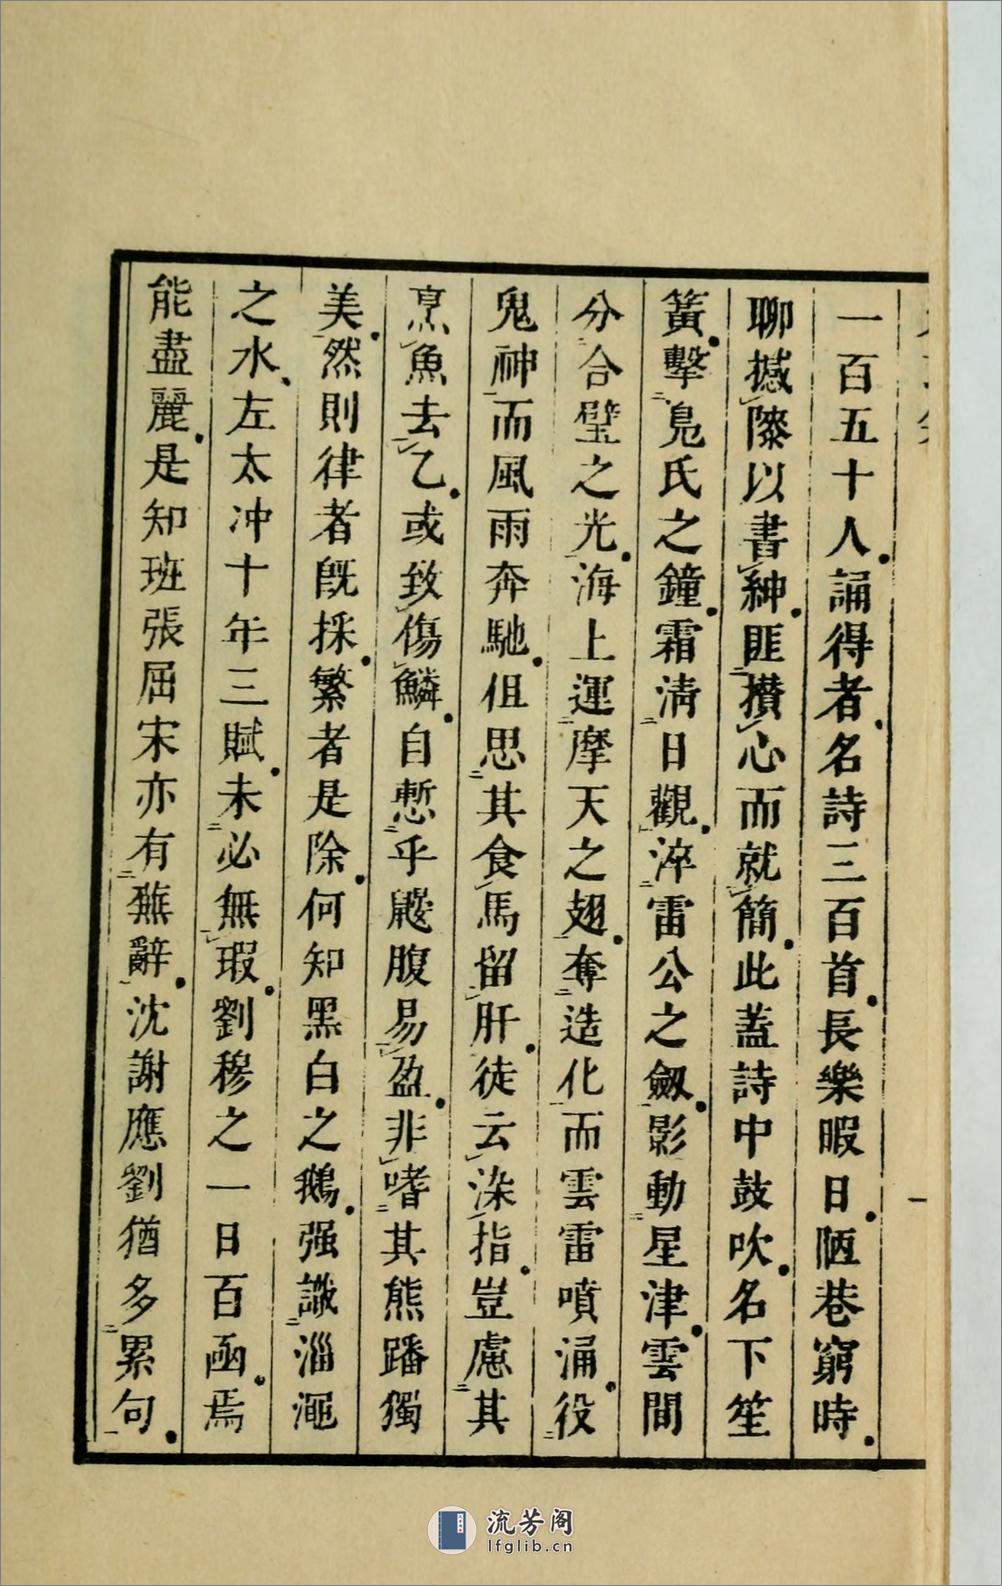 一百五十人誦得者名詩三百首長樂暇日陋巷窮時
聊撼隟以書紳匪攅心而就簡此蓋詩中鼓吹名下笙
簧擊鳧氏之鐘霜淸日觀淬雷公之劔影動星津雲間
分合璧之光海上運摩天之翅奪造化而雲雷噴涌役
鬼神而風雨奔馳但思其食馬留肝徒云染指豈慮其
烹魚去乙或致傷鱗自慙乎鼴腹易盈非嗜其熊蹯獨
美然則律者旣採繁者是除何知黑白之鵝强識淄澠
之水左太冲十年三賦未必無瑕劉穆之一日百函焉
能盡麗是知班張屈宋亦有蕪辭沈謝應劉猶多累句
一
流芳阁
lfglib.cn